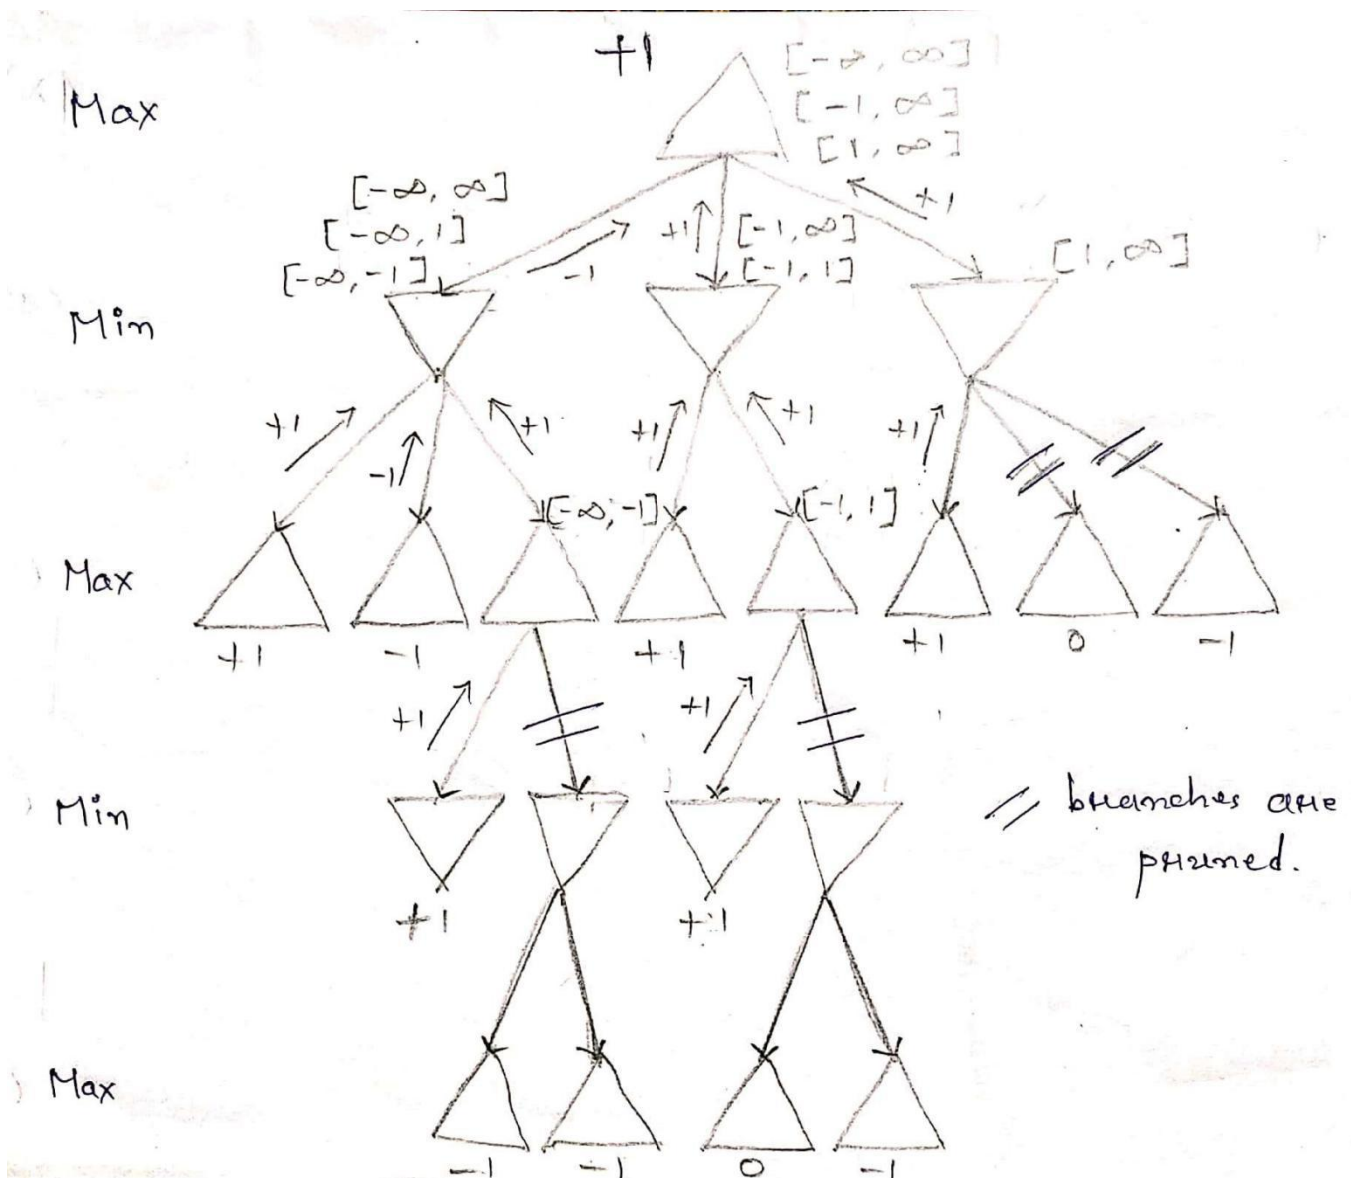 +1 [-∞, ∞]
Max [-1, ∞]
[1, ∞]
[-∞, ∞]
[-∞, 1] +1 [-1, ∞] +1
[-∞, -1] -1 [-1, 1] [1, ∞]
Min
+1 -1 +1 +1 +1 +1
[-∞, -1] [-1, 1]
Max
+1 -1 +1 +1 0 -1
+1 +1
Min // branches are
pruned.
+1 +1
Max
-1 -1 0 -1